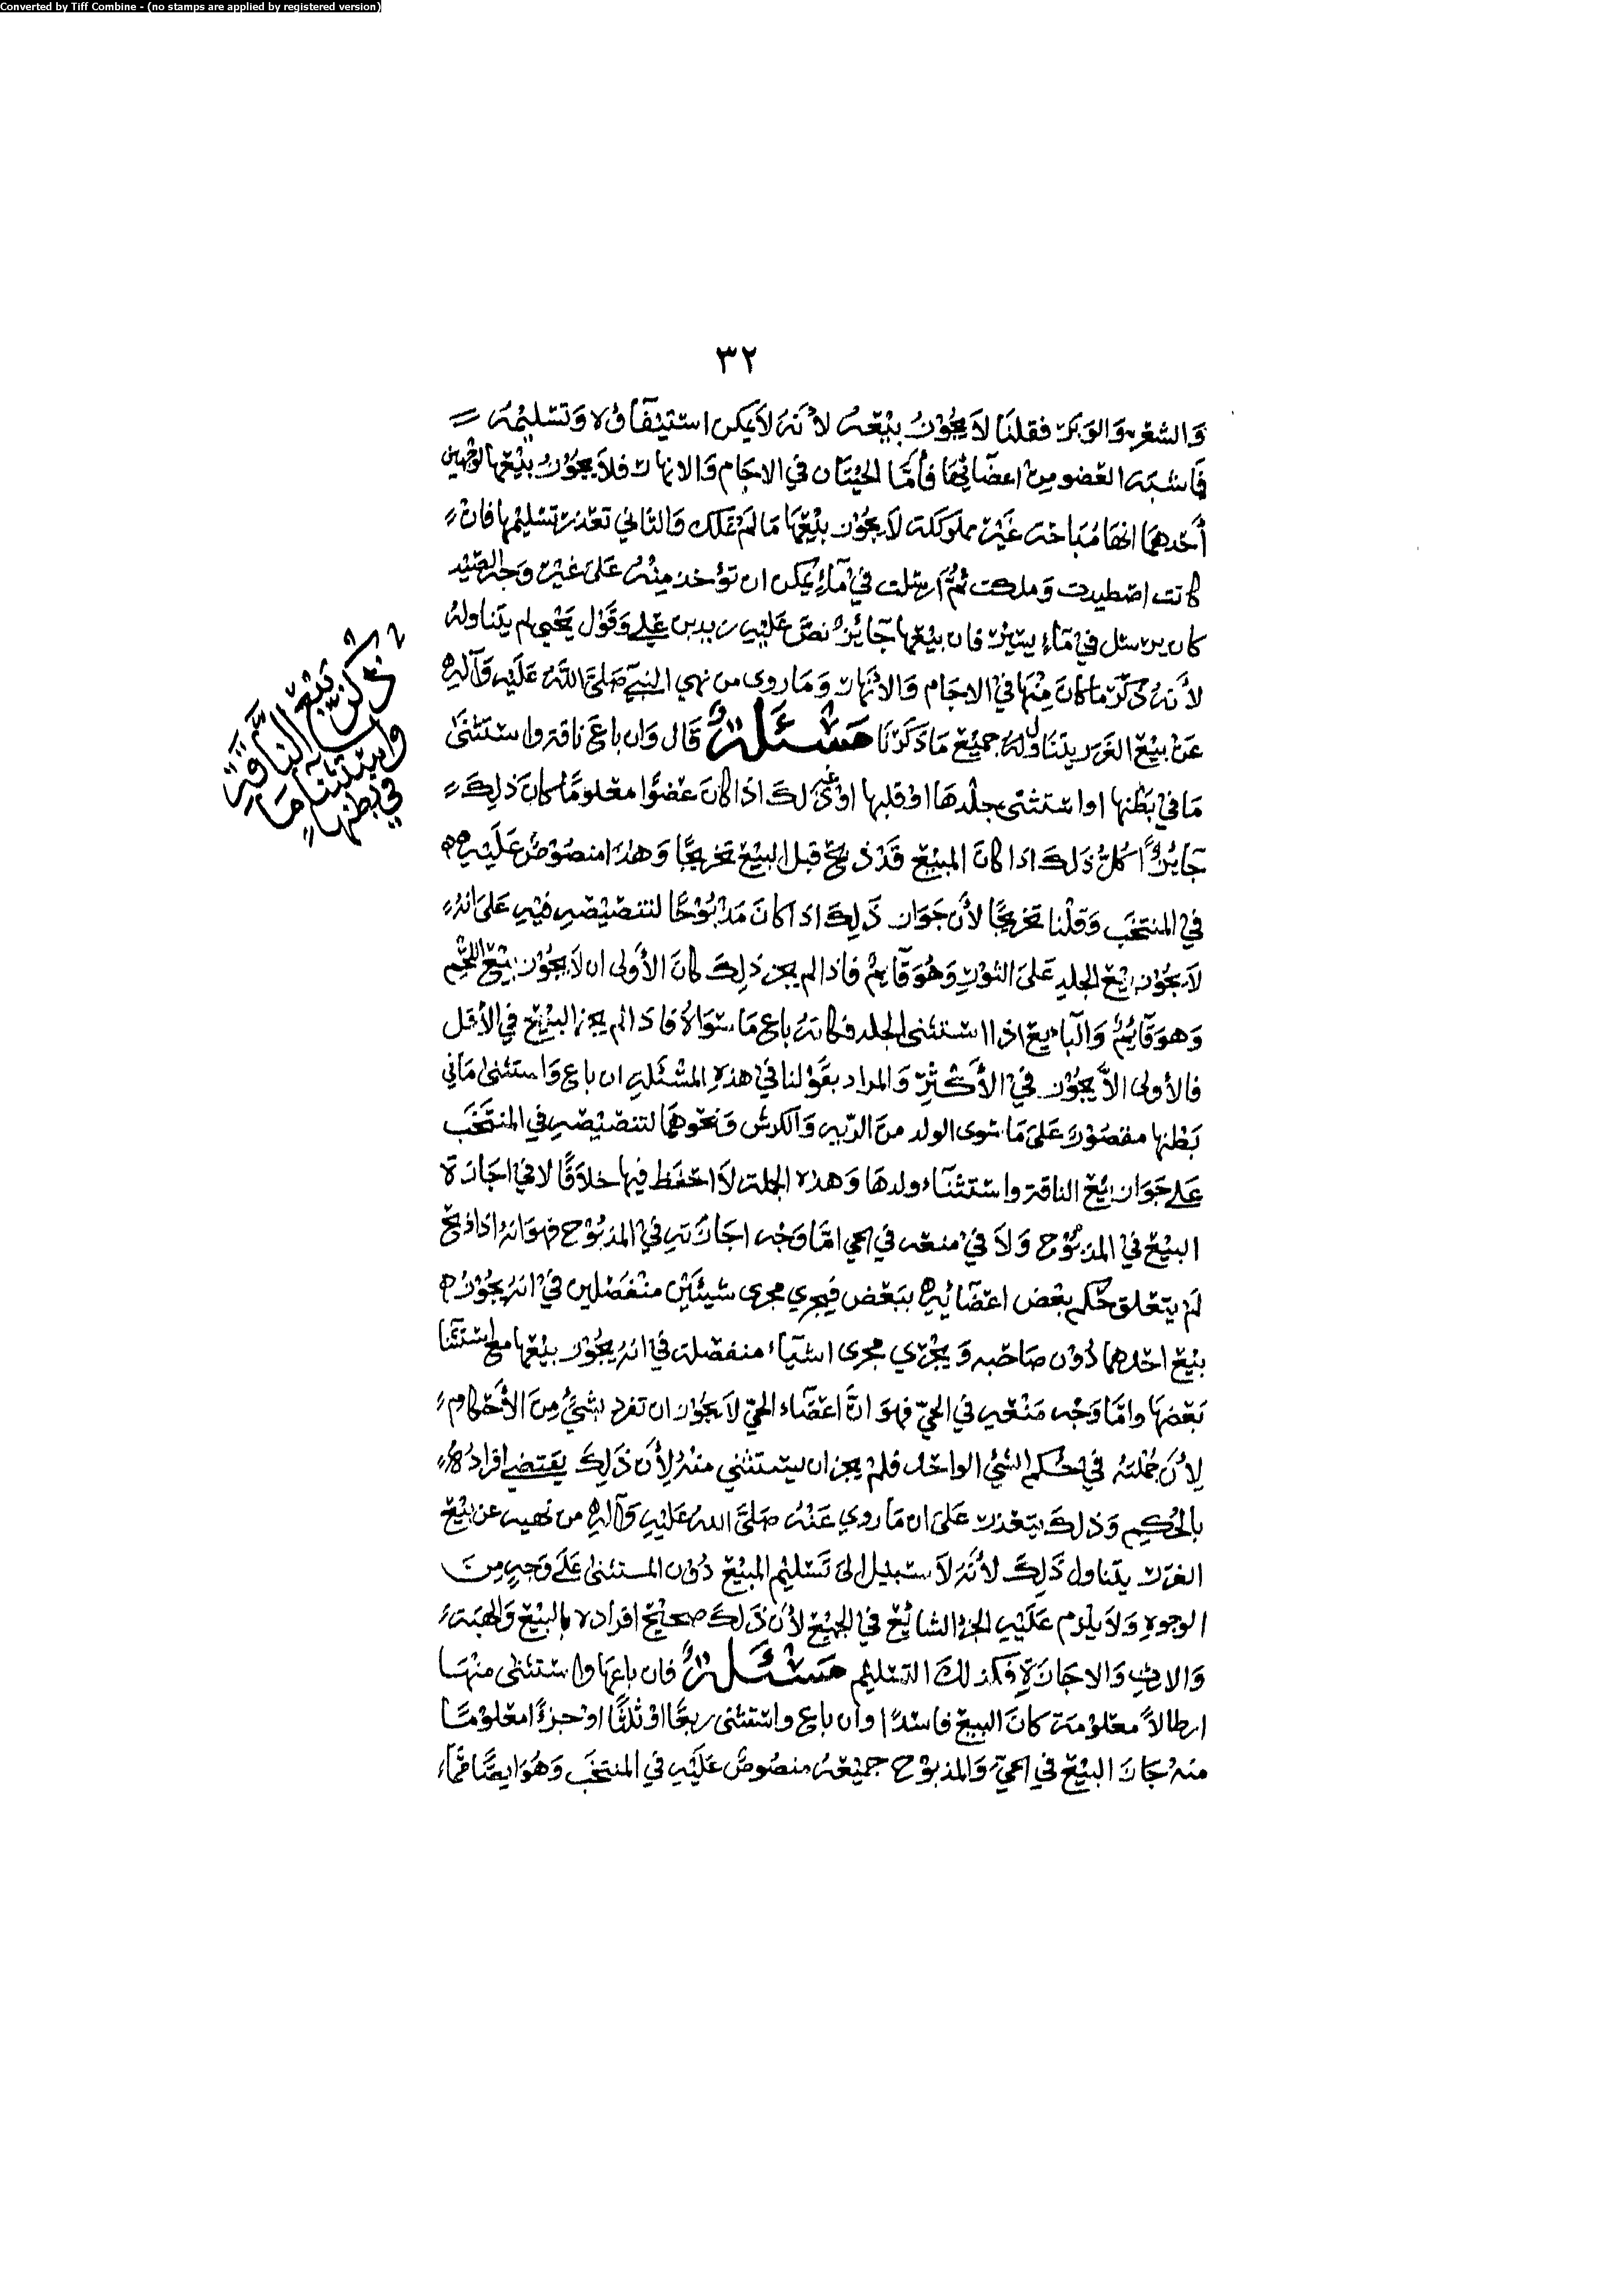 Converted by Tiff Combine - (no stamps are applied by registered version)
٣٢
والشعر والوبر فقلنا لا يجوز بيعه لأنه لا يمكن استيفاؤه وتسليمه
فاشبه العضو من اعضائها فأما الحيتان في الاجام والانهار فلا يجوز بيعها لوجهين
أحدهما انها مباحة غير مملوكة لا يجوز بيعها ما لم تملك والثاني تعذر تسليمها فان
كانت اصطيدت وملكت ثم أرسلت في مآء يمكن ان تؤخذ منه على غير وجه الصيد
كان يرسل في مآء يسير فان بيعها جائز نص عليه زيد بن علي وقول يحيى لم يتناوله
لأنه ذكر ما كان منها في الاجام والانهار وما روى من نهي النبي صلى الله عليه وآله
عن بيع الغرر يتناول جميع ما ذكرنا مسئلة قال وان باع ناقة واستثنى
ما في بطنها او استثنى جلدها او قلبها او غير ذلك اذا كان عضوا معلوما كان ذلك
جايزا كل ذلك اذا كان المبيع قد ذبح قبل البيع تخريجا وهذا منصوص عليه
في المنتخب وقلنا تخريجا لأن جواز ذلك اذا كان مذبوحا لتنصيصه فيه على انه
لا يجوز بيع الجلد على الثور وهو قآيم فاذا لم يجز ذلك كان الأولى ان لا يجوز بيع اللحم
وهو قآيم والبايع اذا استثنى الجلد فكانه باع ما سواه فاذا لم يجز البيع في الأقل
فالأولى الا يجوز في الأكثر والمراد بقولنا في هذه المسئلة ان باع واستثنى ما في
بطنها مقصور على ما سوى الولد من الدبه والكرش ونحوهما لتنصيصه في المنتخب
على جواز بيع الناقة واستثنآء ولدها وهذه الجملة لا احفظ فيها خلافا لا في اجازة
البيع في المذبوح ولا في منعه في الحي امّا وجه اجازته في المذبوح فهو انه اذا ذبح
لم يتعلق حكم بعض اعضائه ببعض فيجري مجرى شيئين منفصلين في انه يجوز
بيع احدهما دون صاحبه ويجري مجرى اشيآء منفصلة في انه يجوز بيعها مع استثنا
بعضها وامّا وجه منعه في الحيّ فهو انّ اعضاء الحيّ لا يجوز ان تفرد بشيء من الأحكام
لأن جملته في حكم الشيء الواحد فلم يجز ان يستثنى منه لأن ذلك يقتضي افراده
بالحكم وذلك يتعذر على ان ما روي عنه صلى الله عليه وآله من نهيه عن بيع
الغرر يتناول ذلك لأنه لا سبيل الى تسليم المبيع دون المستثنى على وجه من
الوجوه ولا يلزم عليه الجزء الشائع في الجميع لأن ذلك صحيح افراده بالبيع والهبة
والارث والاجازة فكذلك التسليم مسئلة فان باعها واستثنى منها
ارطالا معلومة كان البيع فاسدا وان باع واستثنى ربعا او ثلثا او جزءا معلوما
منه جاز البيع في الحيّ والمذبوح جميعه منصوص عليه في المنتخب وهو ايضا مما
ذكر بيع الناقة
واستثنآء ما
في بطنها